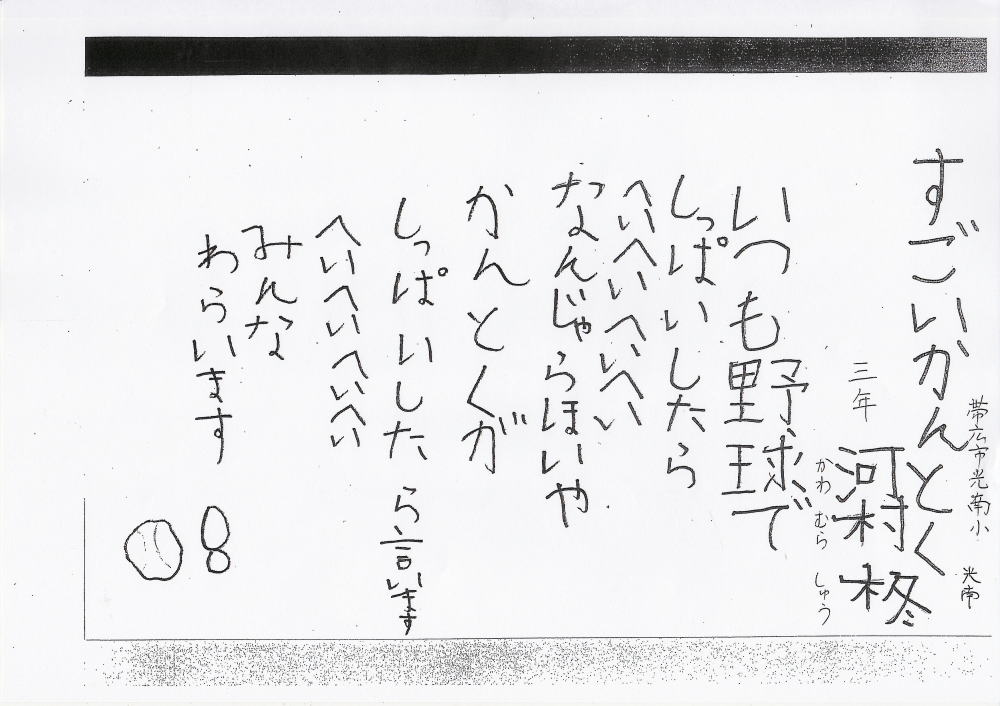 すごいかんとく
帯広市光南小
光南
三年 河村 柊
かわ むら しゅう
いつも野球で
しっぱいしたら
へいへいへいへい
なんじゃらほいや
かんとくが
しっぱいしたら言います
へいへいへいへい
みんな
わらいます
8